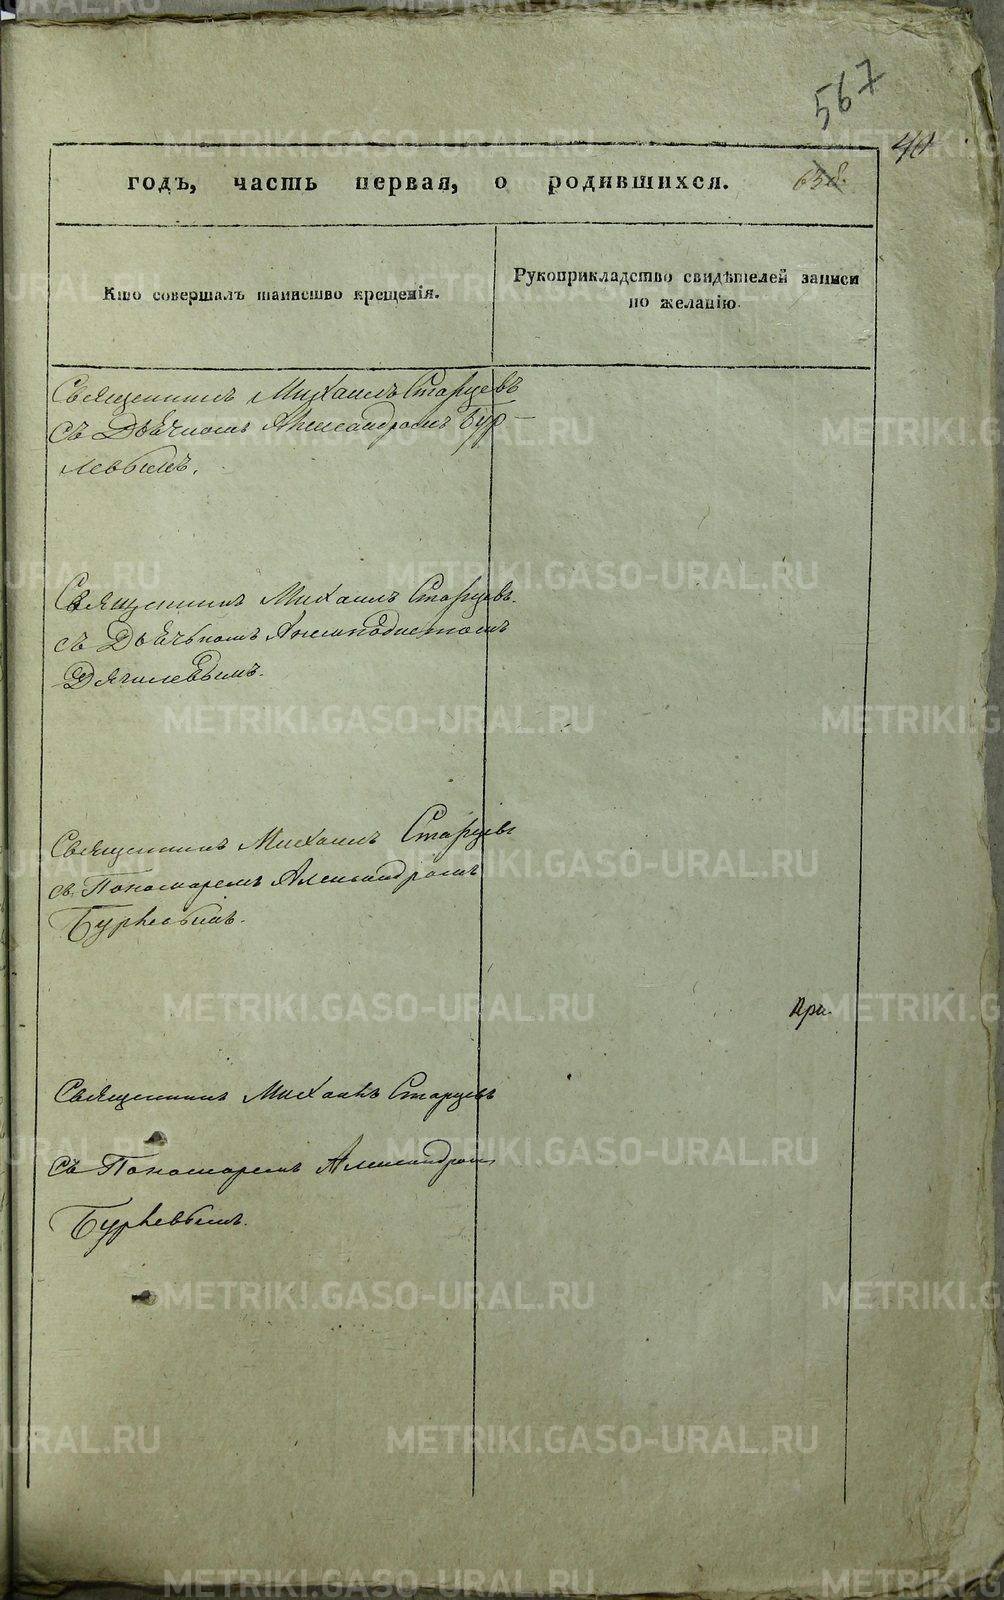 567
40
годъ, часть первая, о родившихся. 658.
Кто совершалъ таинство крещенія.
Рукоприкладство свидѣтелей записи
по желанію.
Священникъ Михаилъ Старцевъ
съ Дьячкомъ Александромъ Бур-
левымъ.
Священникъ Михаилъ Старцевъ
съ Дьячькомъ
Дягилевымъ.
Священникъ Михаилъ Старцевъ
съ Пономаремъ Александромъ
Бурлевымъ.
При
Священникъ Михаилъ Старцевъ
съ Пономаремъ Александромъ
Бурлевымъ.
METRIKI.GASO-URAL.RU